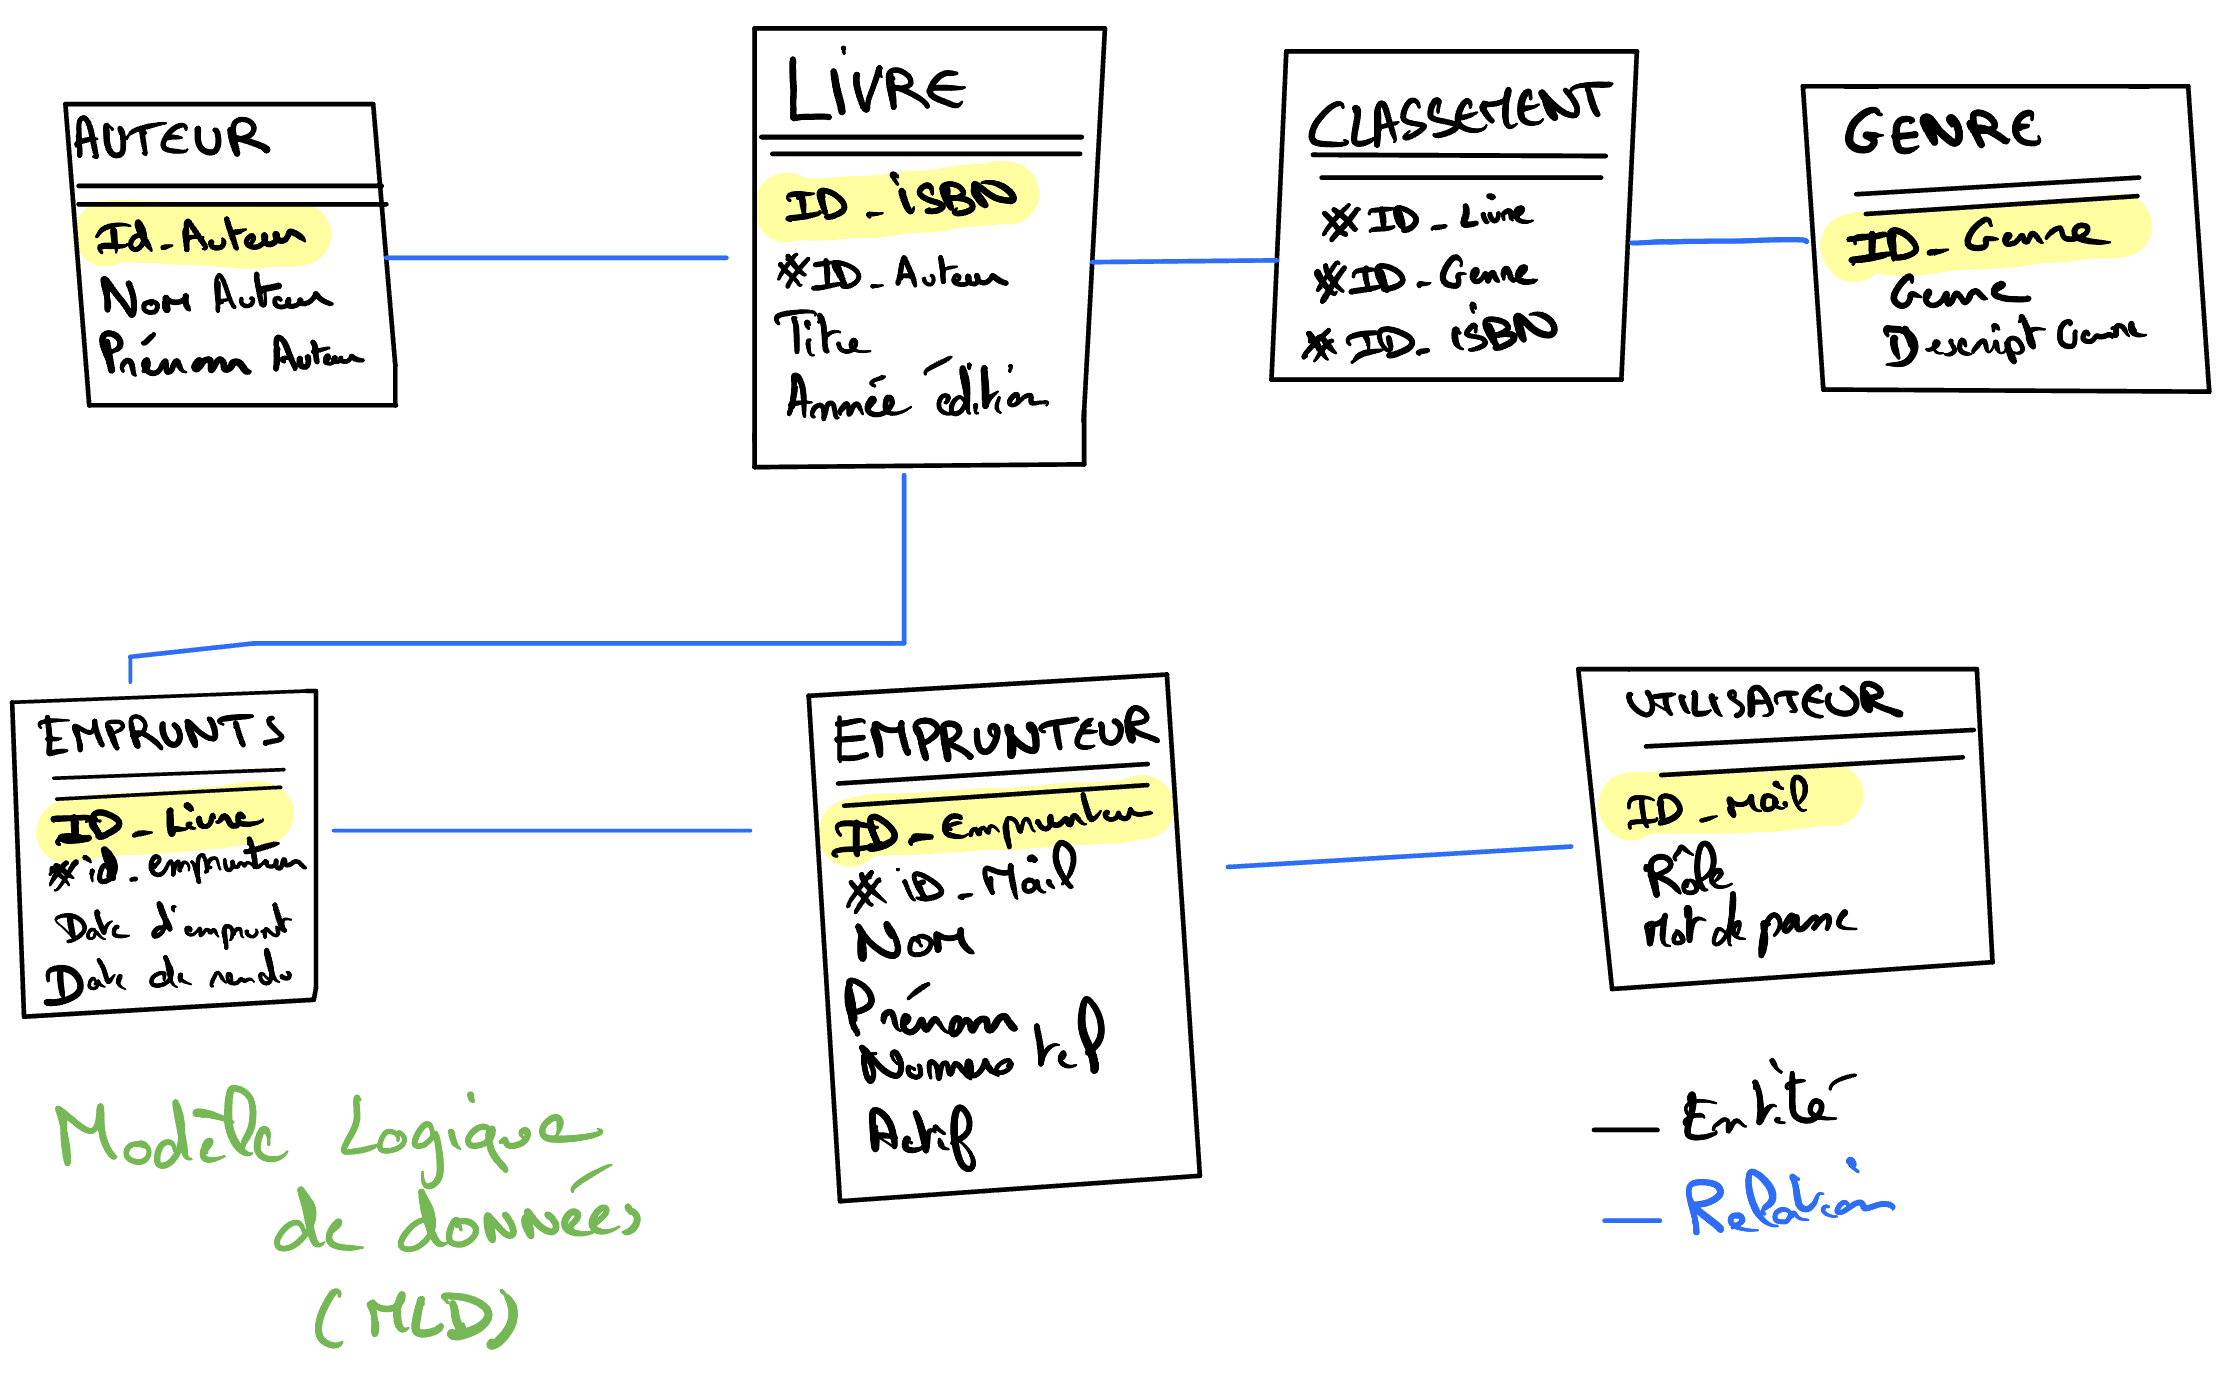 AUTEUR
Id_Auteur
Nom Auteur
Prénom Auteur
LiVRE
ID_iSBN
#ID_Auteur
Titre
Année édition
CLASSEMENT
#ID_Livre
#ID_Genre
#ID_iSBN
GENRE
ID_Genre
Genre
Descript Genre
EMPRUNTS
ID_Livre
#id_emprunteur
Date d'emprunt
Date de rendu
EMPRUNTEUR
ID_Emprunteur
#iD_Mail
Nom
Prénom
Numero tel
Actif
UTILISATEUR
ID_Mail
Rôle
Mot de passe
Modèle Logique
de données
(MLD)
Entité
Relation